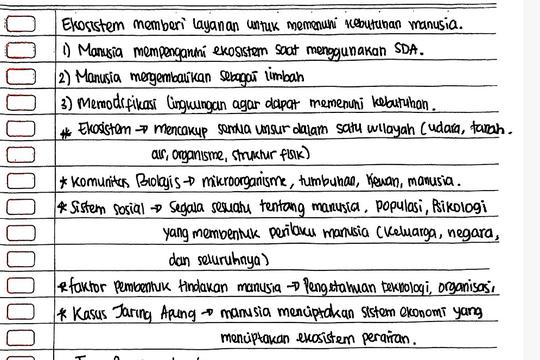 Ekosistem memberi layanan untuk memenuhi kebutuhan manusia.
1) Manusia mempengaruhi ekosistem saat menggunakan SDA.
2) Manusia mengembalikan sebagai limbah
3) Memodifikasi lingkungan agar dapat memenuhi kebutuhan.
* Ekosistem → mencakup semua unsur dalam satu wilayah (udara, tanah.
air, organisme, struktur fisik)
* Komunitas Biologis → mikroorganisme, tumbuhan, hewan, manusia.
* Sistem sosial → Segala sesuatu tentang manusia, populasi, Psikologi
yang membentuk perilaku manusia (keluarga, negara,
dan seluruhnya)
* faktor pembentuk tindakan manusia → Pengetahuan teknologi, organisasi,
* Kasus Jaring Apung → manusia menciptakan sistem ekonomi yang
menciptakan ekosistem perairan.